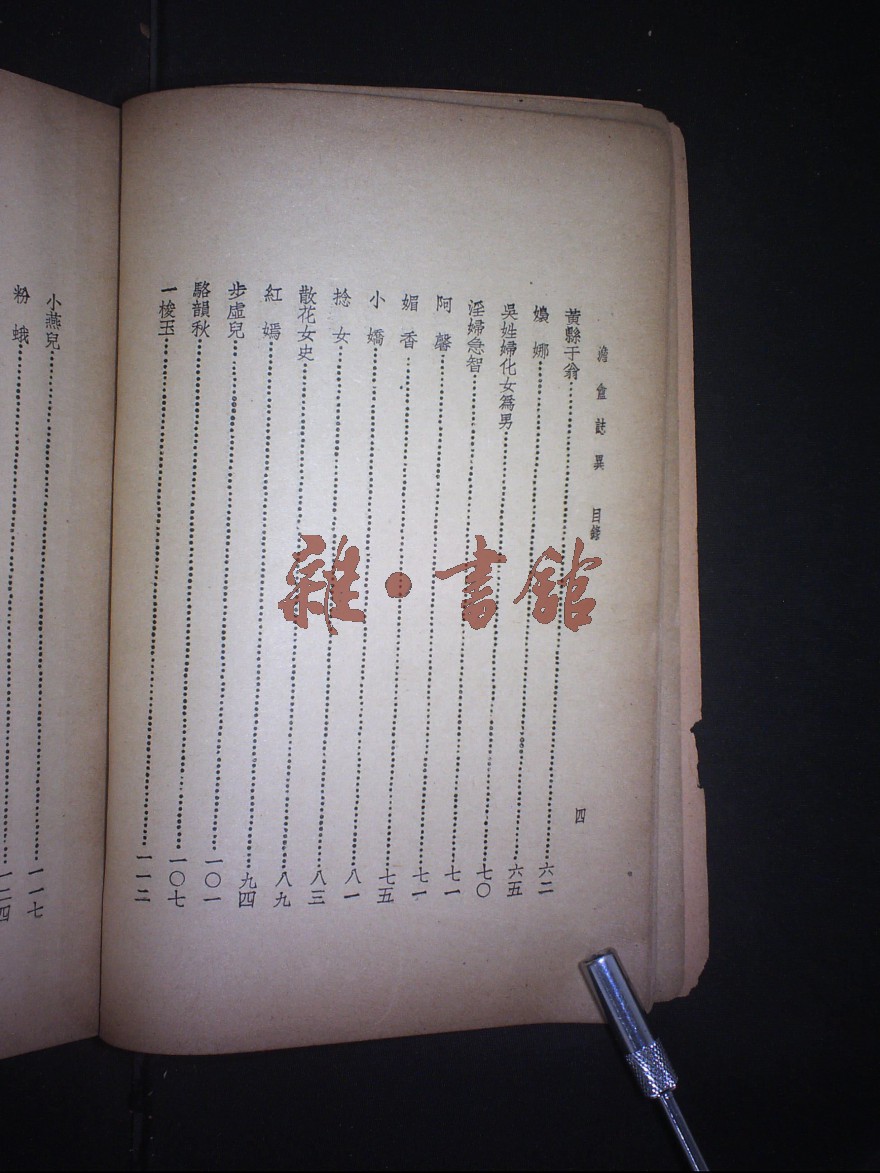 澹盦誌異 目錄 四
黃縣于翁……六二
嬝娜……六五
吳姓婦化女爲男……七〇
淫婦急智……七一
阿馨……七一
媚香……七五
小嬌……八一
捻女……八三
散花女史……八九
紅嫣……九四
步虛兒……一〇一
駱韻秋……一〇七
一梭玉……一一二
小燕兒……一一七
粉蛾……一二四
雜·書館